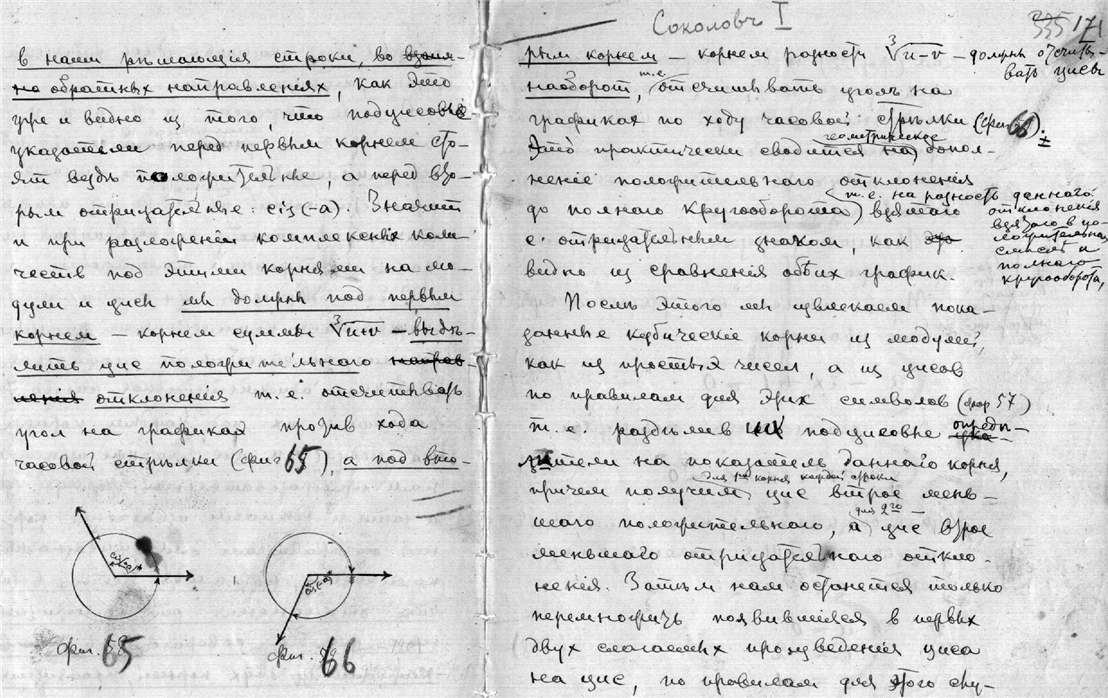 в наши рѣшающія строки, во взаим-
но обратных направленіях, как это
уже и видно из того, что подцисовые
указатели перед первым корнем сто-
ят вездѣ положительные, а перед вто-
рым отрицательные: cis(-a). Значит
и при разложеніи комплексных коли-
честв под этими корнями на мо-
дули и цисы мы должны под первым
корнем — корнем суммы ∛u+v — выдѣ-
лить цис положительного направ-
ленія отклоненія т. е. отсчитывать
угол на графиках против хода
часовой стрѣлки (фиг 65), а под вто-
фиг. 65
фиг. 66
Соколовъ I
335 171
рым корнем — корнем разности ∛u-v — должны отсчиты-
вать цисы
наоборот, т.е. отсчитывать уголъ на
графиках по ходу часовой стрѣлки (фиг 66).
Это практически сводится геометрически на допол-
неніе положительнаго отклоненія
до полнаго кругооборота (т. е. на разность даннаго
отклоненія
взятаго в по-
ложительном
смыслѣ и
полнаго
кругооборота,
взятаго
с отрицательным знаком, как это
видно из сравненія обѣих график.
Послѣ этого мы извлекаем пока-
занные кубическіе корни из модулей,
как из простых чисел, а из цисов
по правилам для этих символов (фор 57)
т. е раздѣлив их подцисовые опредѣ-
лители на показатель даннаго корня,
причем получим для 1го корня каждой строки цис втрое мень-
шаго положительнаго, а для 2го цис втрое
меньшаго отрицательнаго откло-
ненія. Затѣм нам останется только
перемножить появившіяся в первых
двух слагаемых произведенія циса
на цис, по правилам для этого слу-